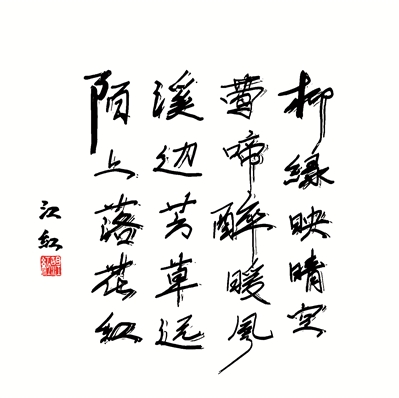 柳绿映晴空
莺啼醉暖风
溪边芳草远
陌上落花红
江红